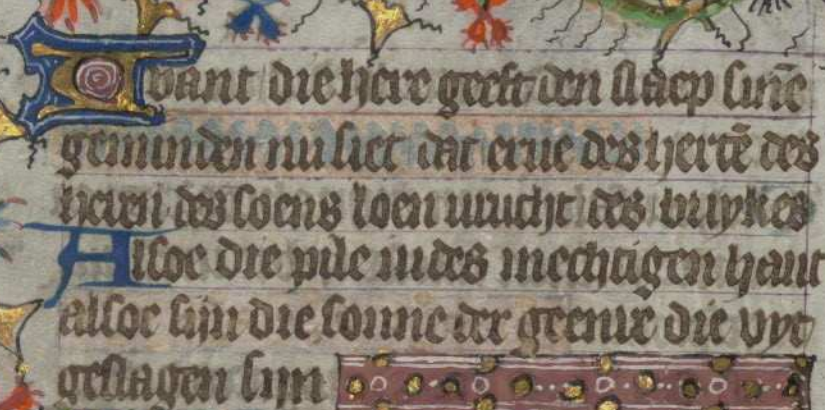 Want die here geeft den slaep sinē
geminden nu siet dat erue des hertē des
heren des soens loen urucht des buykes
Alsoe die pile in des mechtigen hant
alsoe sijn die sonne der geenre die uyt
geslagen sijn